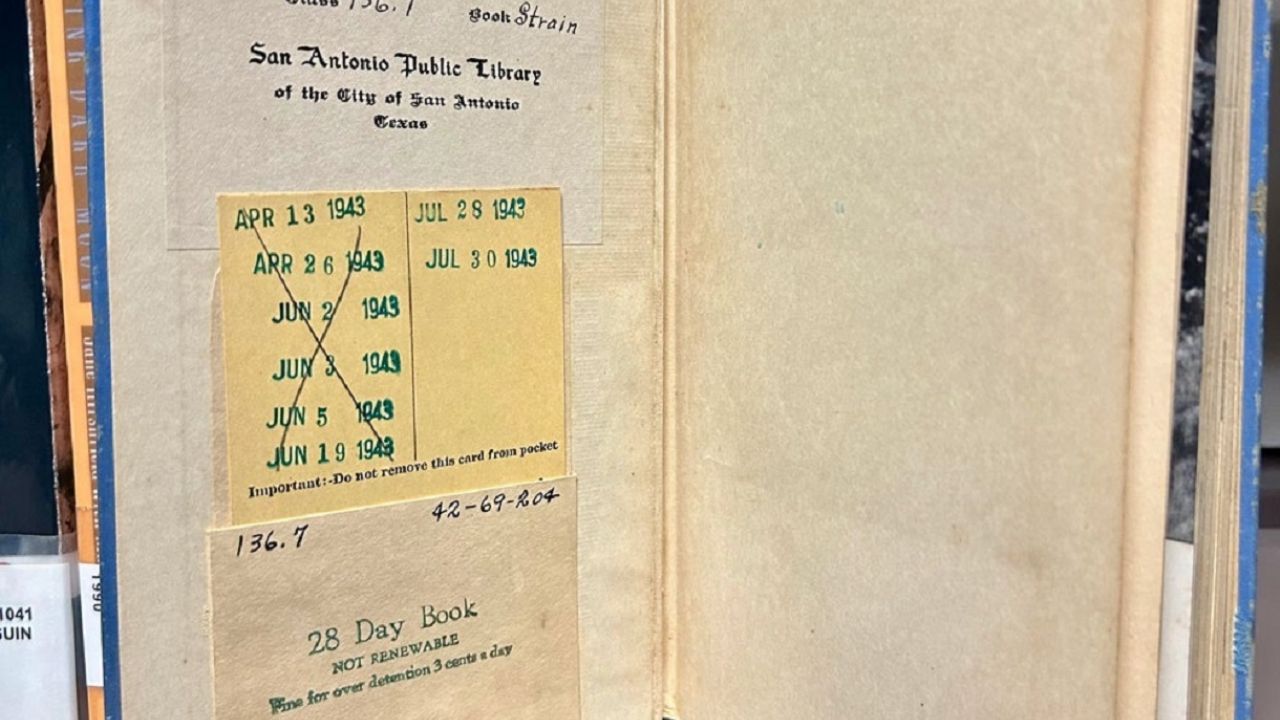 Class 136.7 Book Strain
San Antonio Public Library
of the City of San Antonio
Texas
APR 13 1943
APR 26 1943
JUN 2 1943
JUN 3 1943
JUN 5 1943
JUN 19 1943
JUL 28 1943
JUL 30 1943
Important:-Do not remove this card from pocket
42-69-204
136.7
28 Day Book
NOT RENEWABLE
Fine for over detention 3 cents a day
1041
GUIN
1990